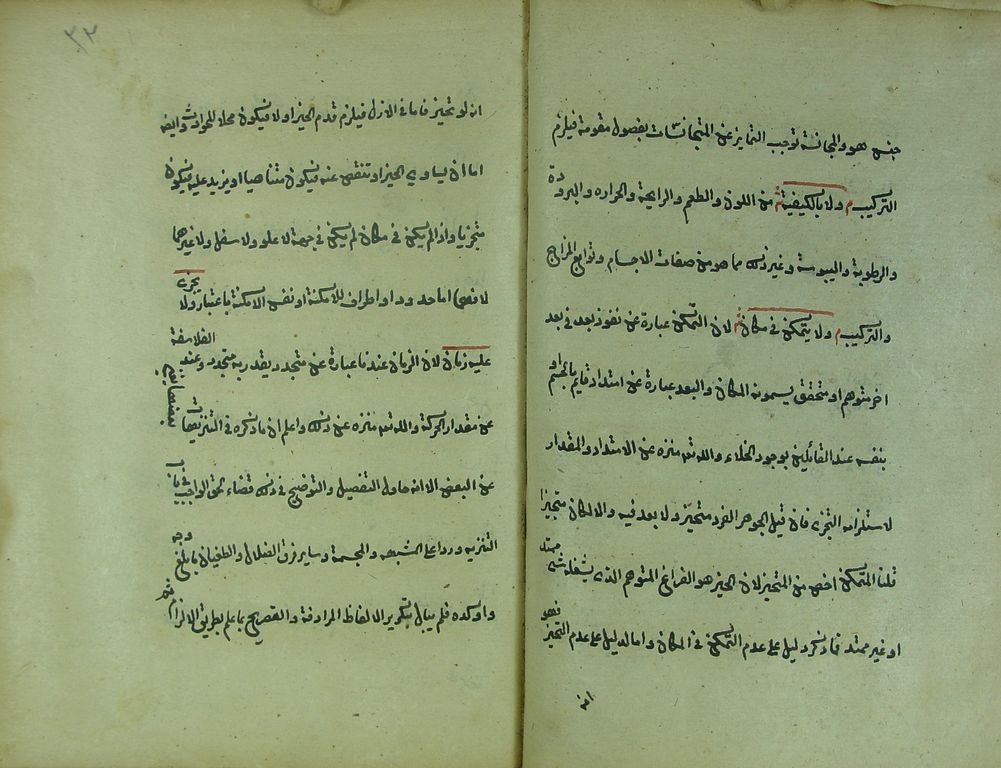 جنس هو والمجانسة توجب التمايز عن المتجانسات بفصول مقومة فيلزم
التركيب م ولا بالكيفية ش من اللون والطعم والرايحة والحراره والبرودة
والرطوبة واليبوسة وغير ذلك مما هو من صفات الاجسام وتوابع المزاج
والتركيب م ولا يتمكن في مكان ش لان التمكن عبارة عن نفوذ بعد في بعد
اخر متوهم او متحقق يسمونه المكان والبعد عبارة عن امتداد قايم بالجسم او
بنفسه عند القائلين بوجود الخلاء والله تعه منزه عن الامتداد والمقدار
لاستلزامه التجزى فان قيل الجوهر الفرد متحيز ولا بعد فيه والا لكان متجيزا
قلنا المتمكن اخص من المتحيز لان الحيز هو الفراغ المتوهم الذى يشغله شئ ممتد
او غير ممتد فما ذكر دليل على عدم التمكن في المكان واما الدليل على عدم التحيز فهو
انه
٣٢
انه لو تحيز فاما فى الازل فيلزم قدم الحيز اولا فيكون محلا للحوادث وايضا
اما ان يساوي الحيز او تنقص عنه فيكون متناهيا او يزيد عليه فيكون
متجزيا واذا لم يكن في مكان لم يكن في جهة لا علو ولا سفل ولا غيرهما
لانها اما حدود او اطراف للامكنة او نفس الامكنة باعتبار ولا يجرى
عليه زمان لان الزمان عندنا عبارة عن متجدد يقدر به متجدد وعند الفلاسفة
عن مقدار الحركة والله تعه منزه عن ذلك واعلم ان ما ذكره في التنزيهات بعضها يغنى
عن البعض الا انه حاول التفصيل والتوضيح في ذلك قضاء لحق الواجب في باب
التنزيه وردا على المشبهه والمجسمة وساير فرق الضلال والطغيان بابلغ وجه
واوكده فلم يبال بتكرير الالفاظ المرادفة والتصريح بما علم بطريق الالزام ثم